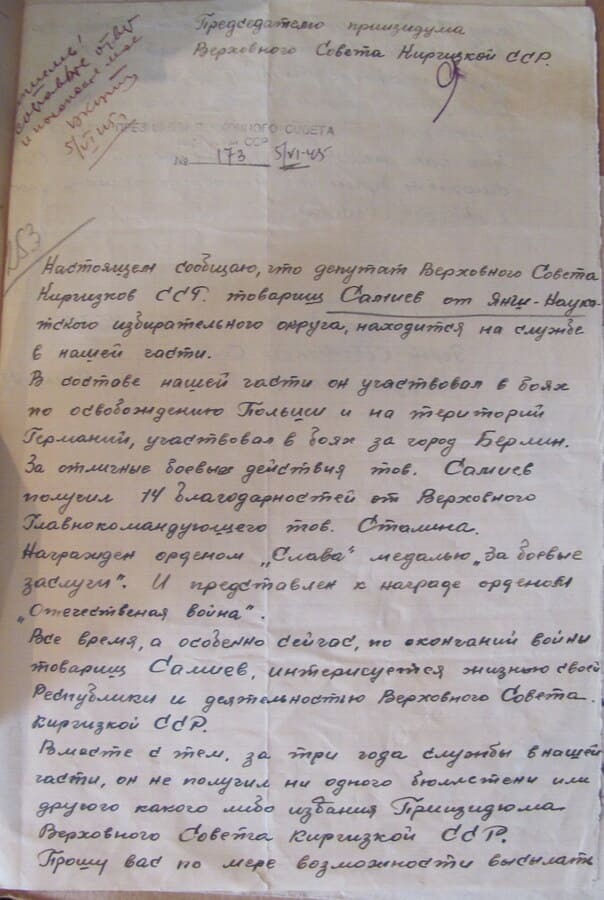 Председателю приизидума
Верховного Совета Киргизкой ССР.
и
5/VI 45
ПРЕЗИДИУМ ВЕРХОВНОГО СОВЕТА
ССР
№ 173 5/VI-45
253
Настоящем сообщаю, что депутат Верховного Совета
Киргизков ССР. товарищ Самиев от Янги-Наука-
тского избирательного округа, находится на службе
в нашей части.
В составе нашей части он участвовал в боях
по освобождению Польши и на територий
Германий, участвовал в боях за город Берлин.
За отличные боевые действия тов. Самиев
получил 14 благодарностей от Верховного
Главнокомандующего тов. Сталина.
Награжден орденом „Слава" медалью „За боевые
заслуги". И представлен к награде орденом
„Отечественая война".
Все время, а особенно сейчас, по окончаний войны
товарищ Самиев, интерисуется жизнью своей
Республики и деятельностью Верховного Совета.
Киргизкой ССР.
Вместе с тем, за три года службы в нашей
части, он не получил ни одного бюллстени или
другого какого либо издания Приизидюма
Верховного Совета Киргизкой ССР.
Прошу вас по мере возможности высылать